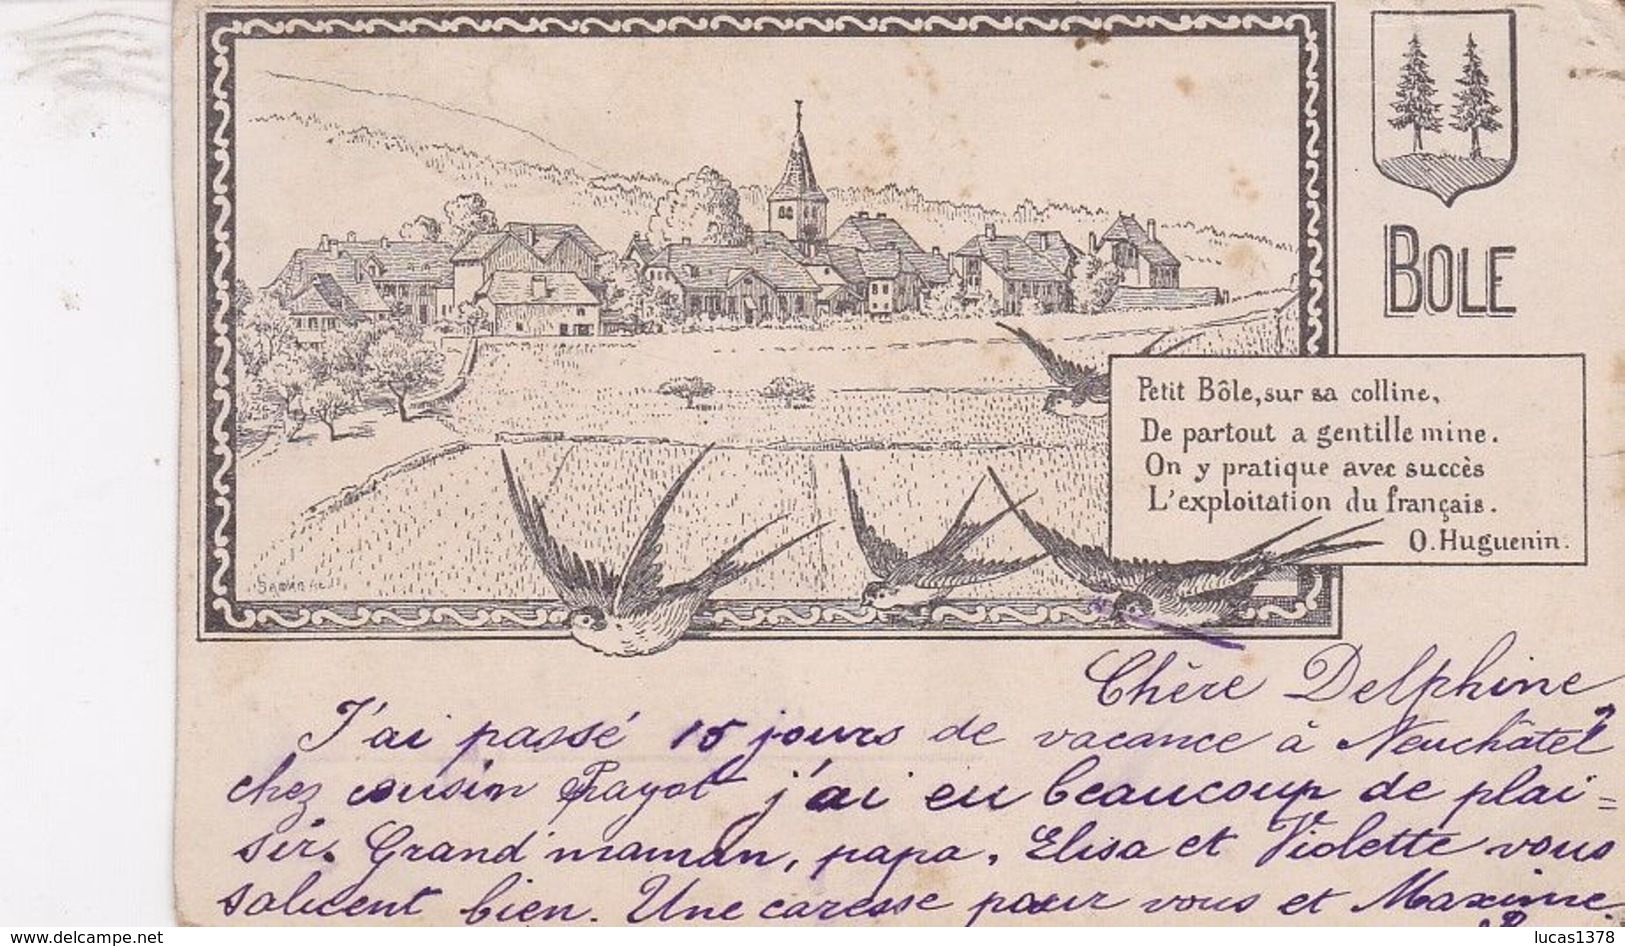 BOLE
Petit Bôle, sur sa colline,
De partout a gentille mine.
On y pratique avec succès
L'exploitation du français.
O. Huguenin.
Chère Delphine
J'ai passé 15 jours de vacance à Neuchâtel
chez cousin Payot j'ai eu beaucoup de plai=
sir. Grand maman, papa, Elisa et Violette vous
saluent bien. Une caresse pour vous et Maxime.
www.delcampe.net
lucas1378